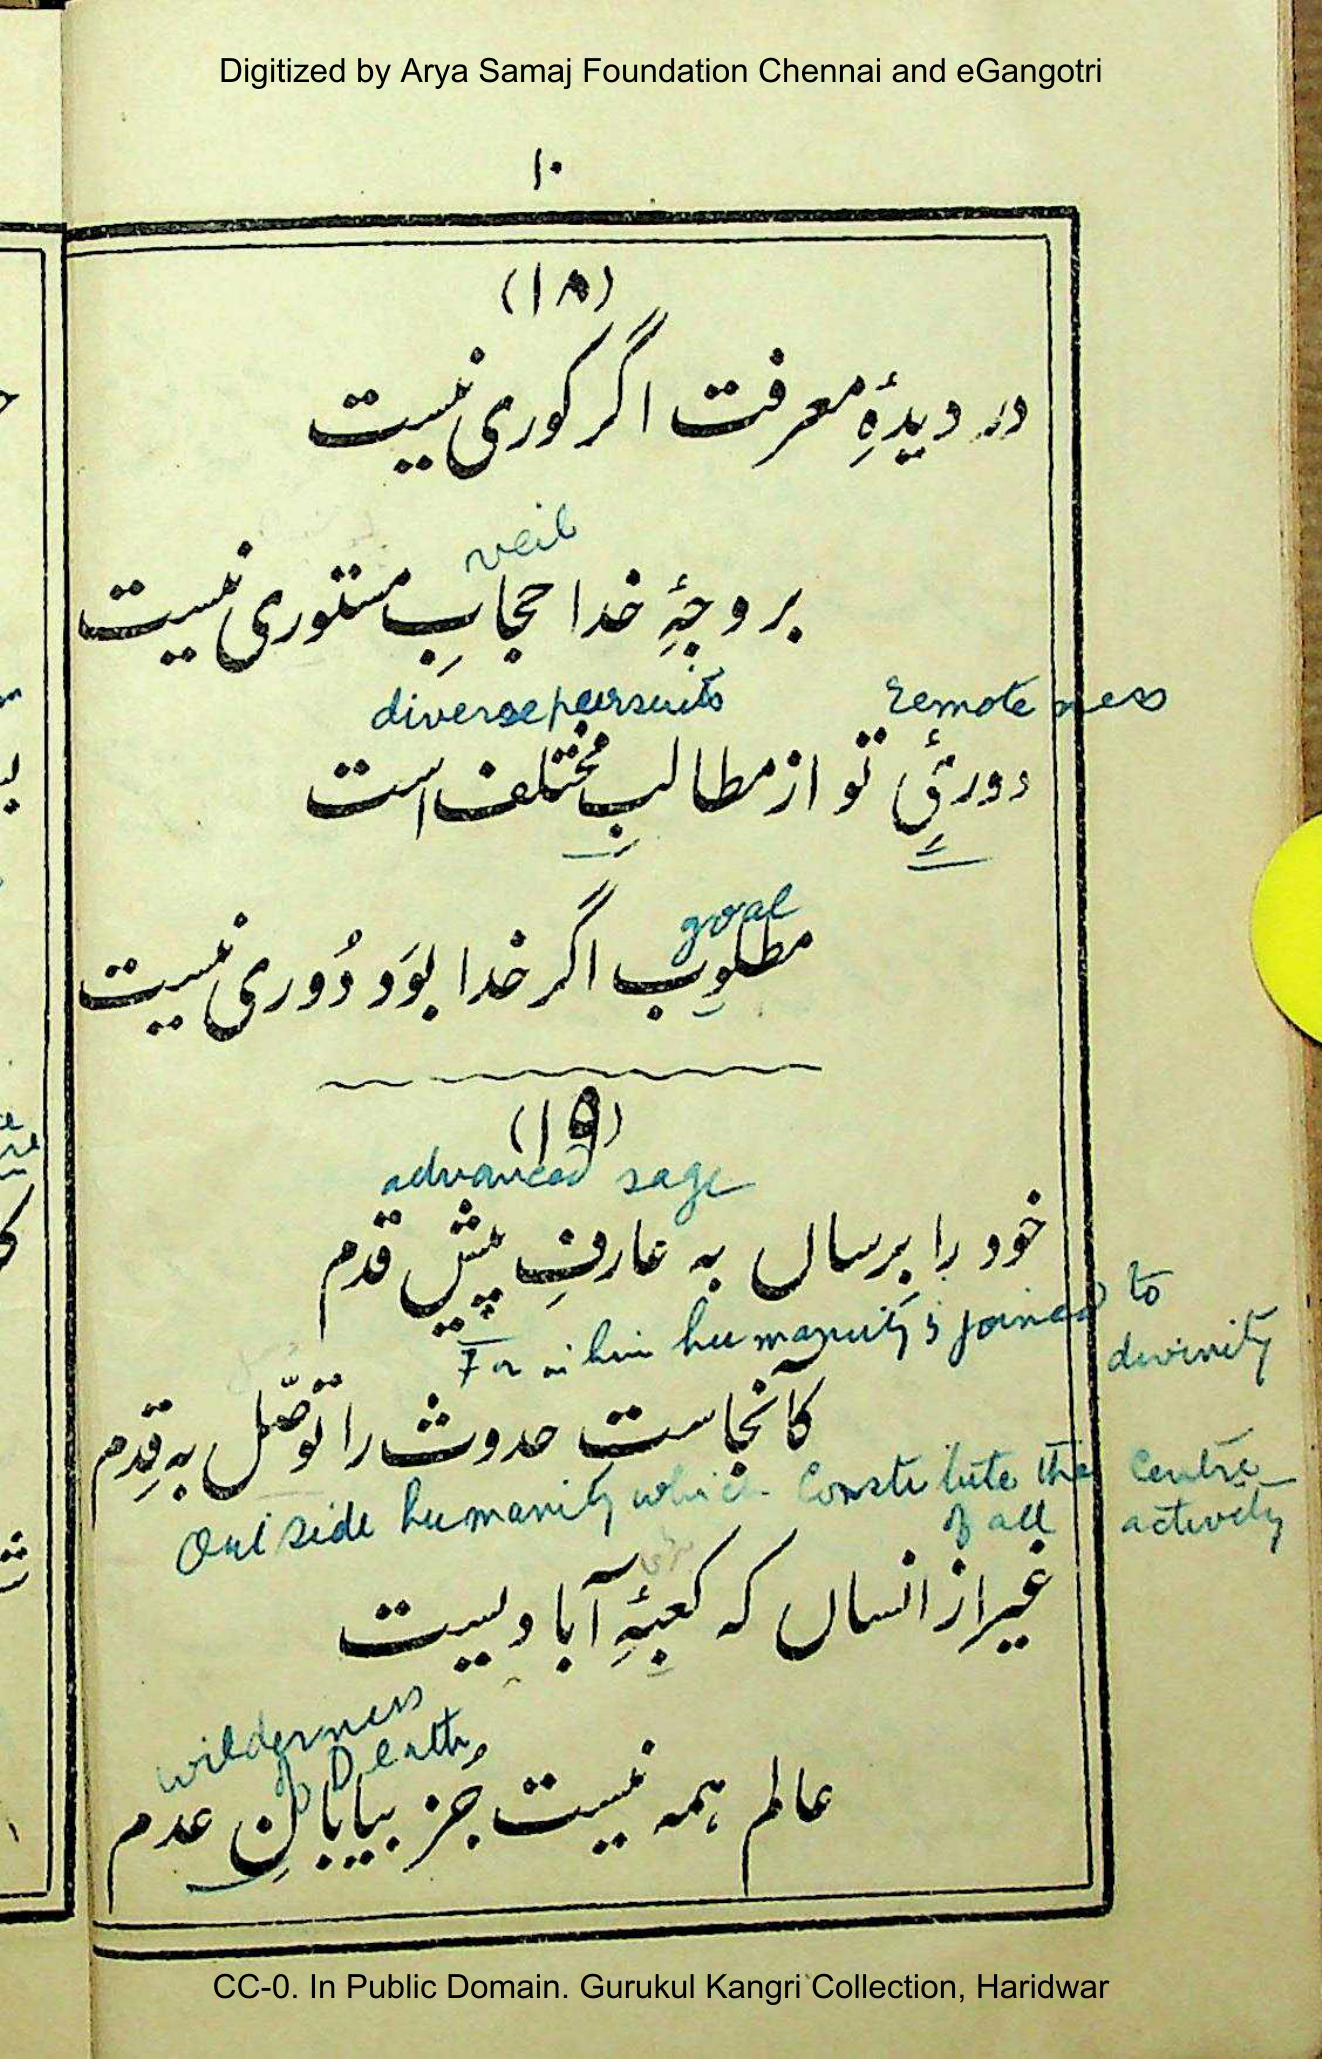 Digitized by Arya Samaj Foundation Chennai and eGangotri
۱۰
(۱۸)
در دیدۂِ معرفت اگر کوری نیست
veil
بر وجۂِ خدا حجابِ مستوری نیست
diverse pursuits remoteness
دورئِ تو از مطالبِ مختلف است
goal
مطلوب اگر خدا بوَد دُوری نیست
(۱۹)
advanced sage
خود را برِساں بہ عارفِ پیش قدم
For in him humanity is joined to
divinity
کآنجاست حدوث را توصّل بہ قِدم
Outside humanity which Constitute the Centre
of all activity
غیر از انساں کہ کعبۂِ آبادیست
wilderness
of Death
عالم ہمہ نیست جُز بیابانِ عدم
CC-0. In Public Domain. Gurukul Kangri Collection, Haridwar